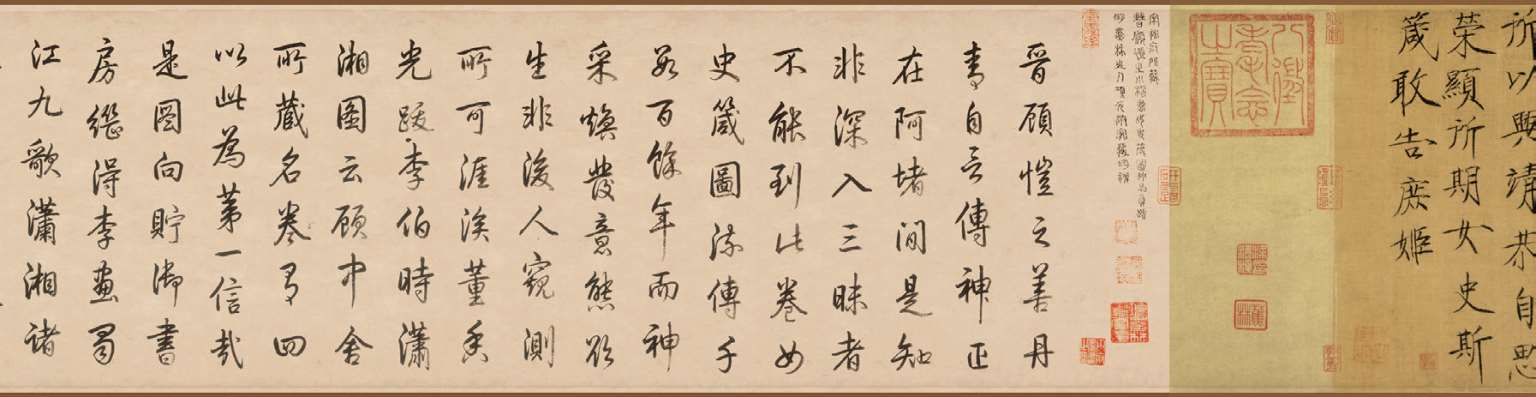 所以興靖恭自思
榮顯所期女史斯
箴敢告庶姬
八徵耄念之寶
晉顧愷之善丹
青自言傳神正
在阿堵間是知
非深入三昧者
不能到此卷女
史箴圖流傳千
數百餘年而神
采煥發意態欲
生非後人窺測
所可涯涘董香
光跋李伯時瀟
湘圖云顧中舍
所藏名卷有四
以此為第一信哉
是圖向貯御書
房繼得李畫蜀
江九歌瀟湘諸